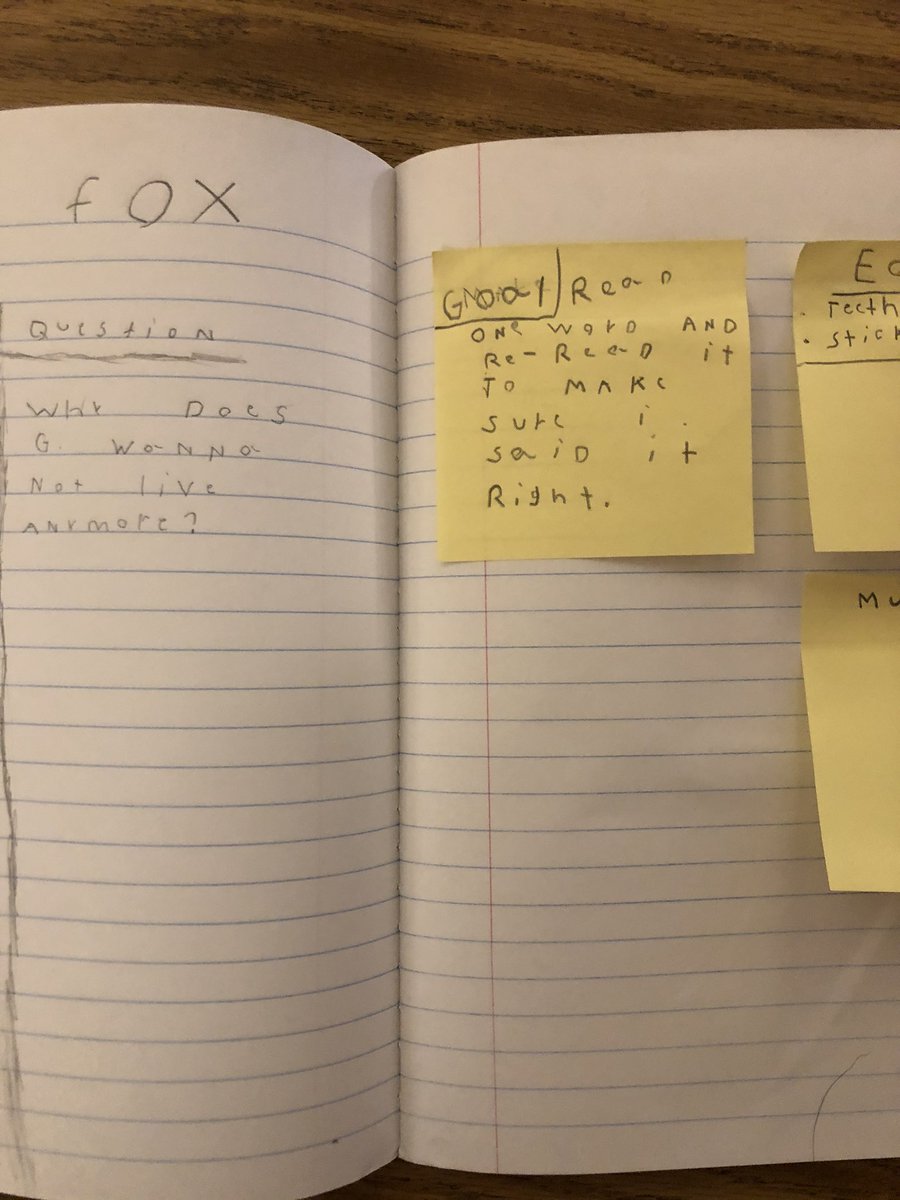 fOX
QUestioN
WhY Does
G. WaNNa
Not live
ANYmore?
Goal Read
ONe WorD AND
Re-ReaD it
To MAKe
sure i
saiD it
Right.
Teeth
stick